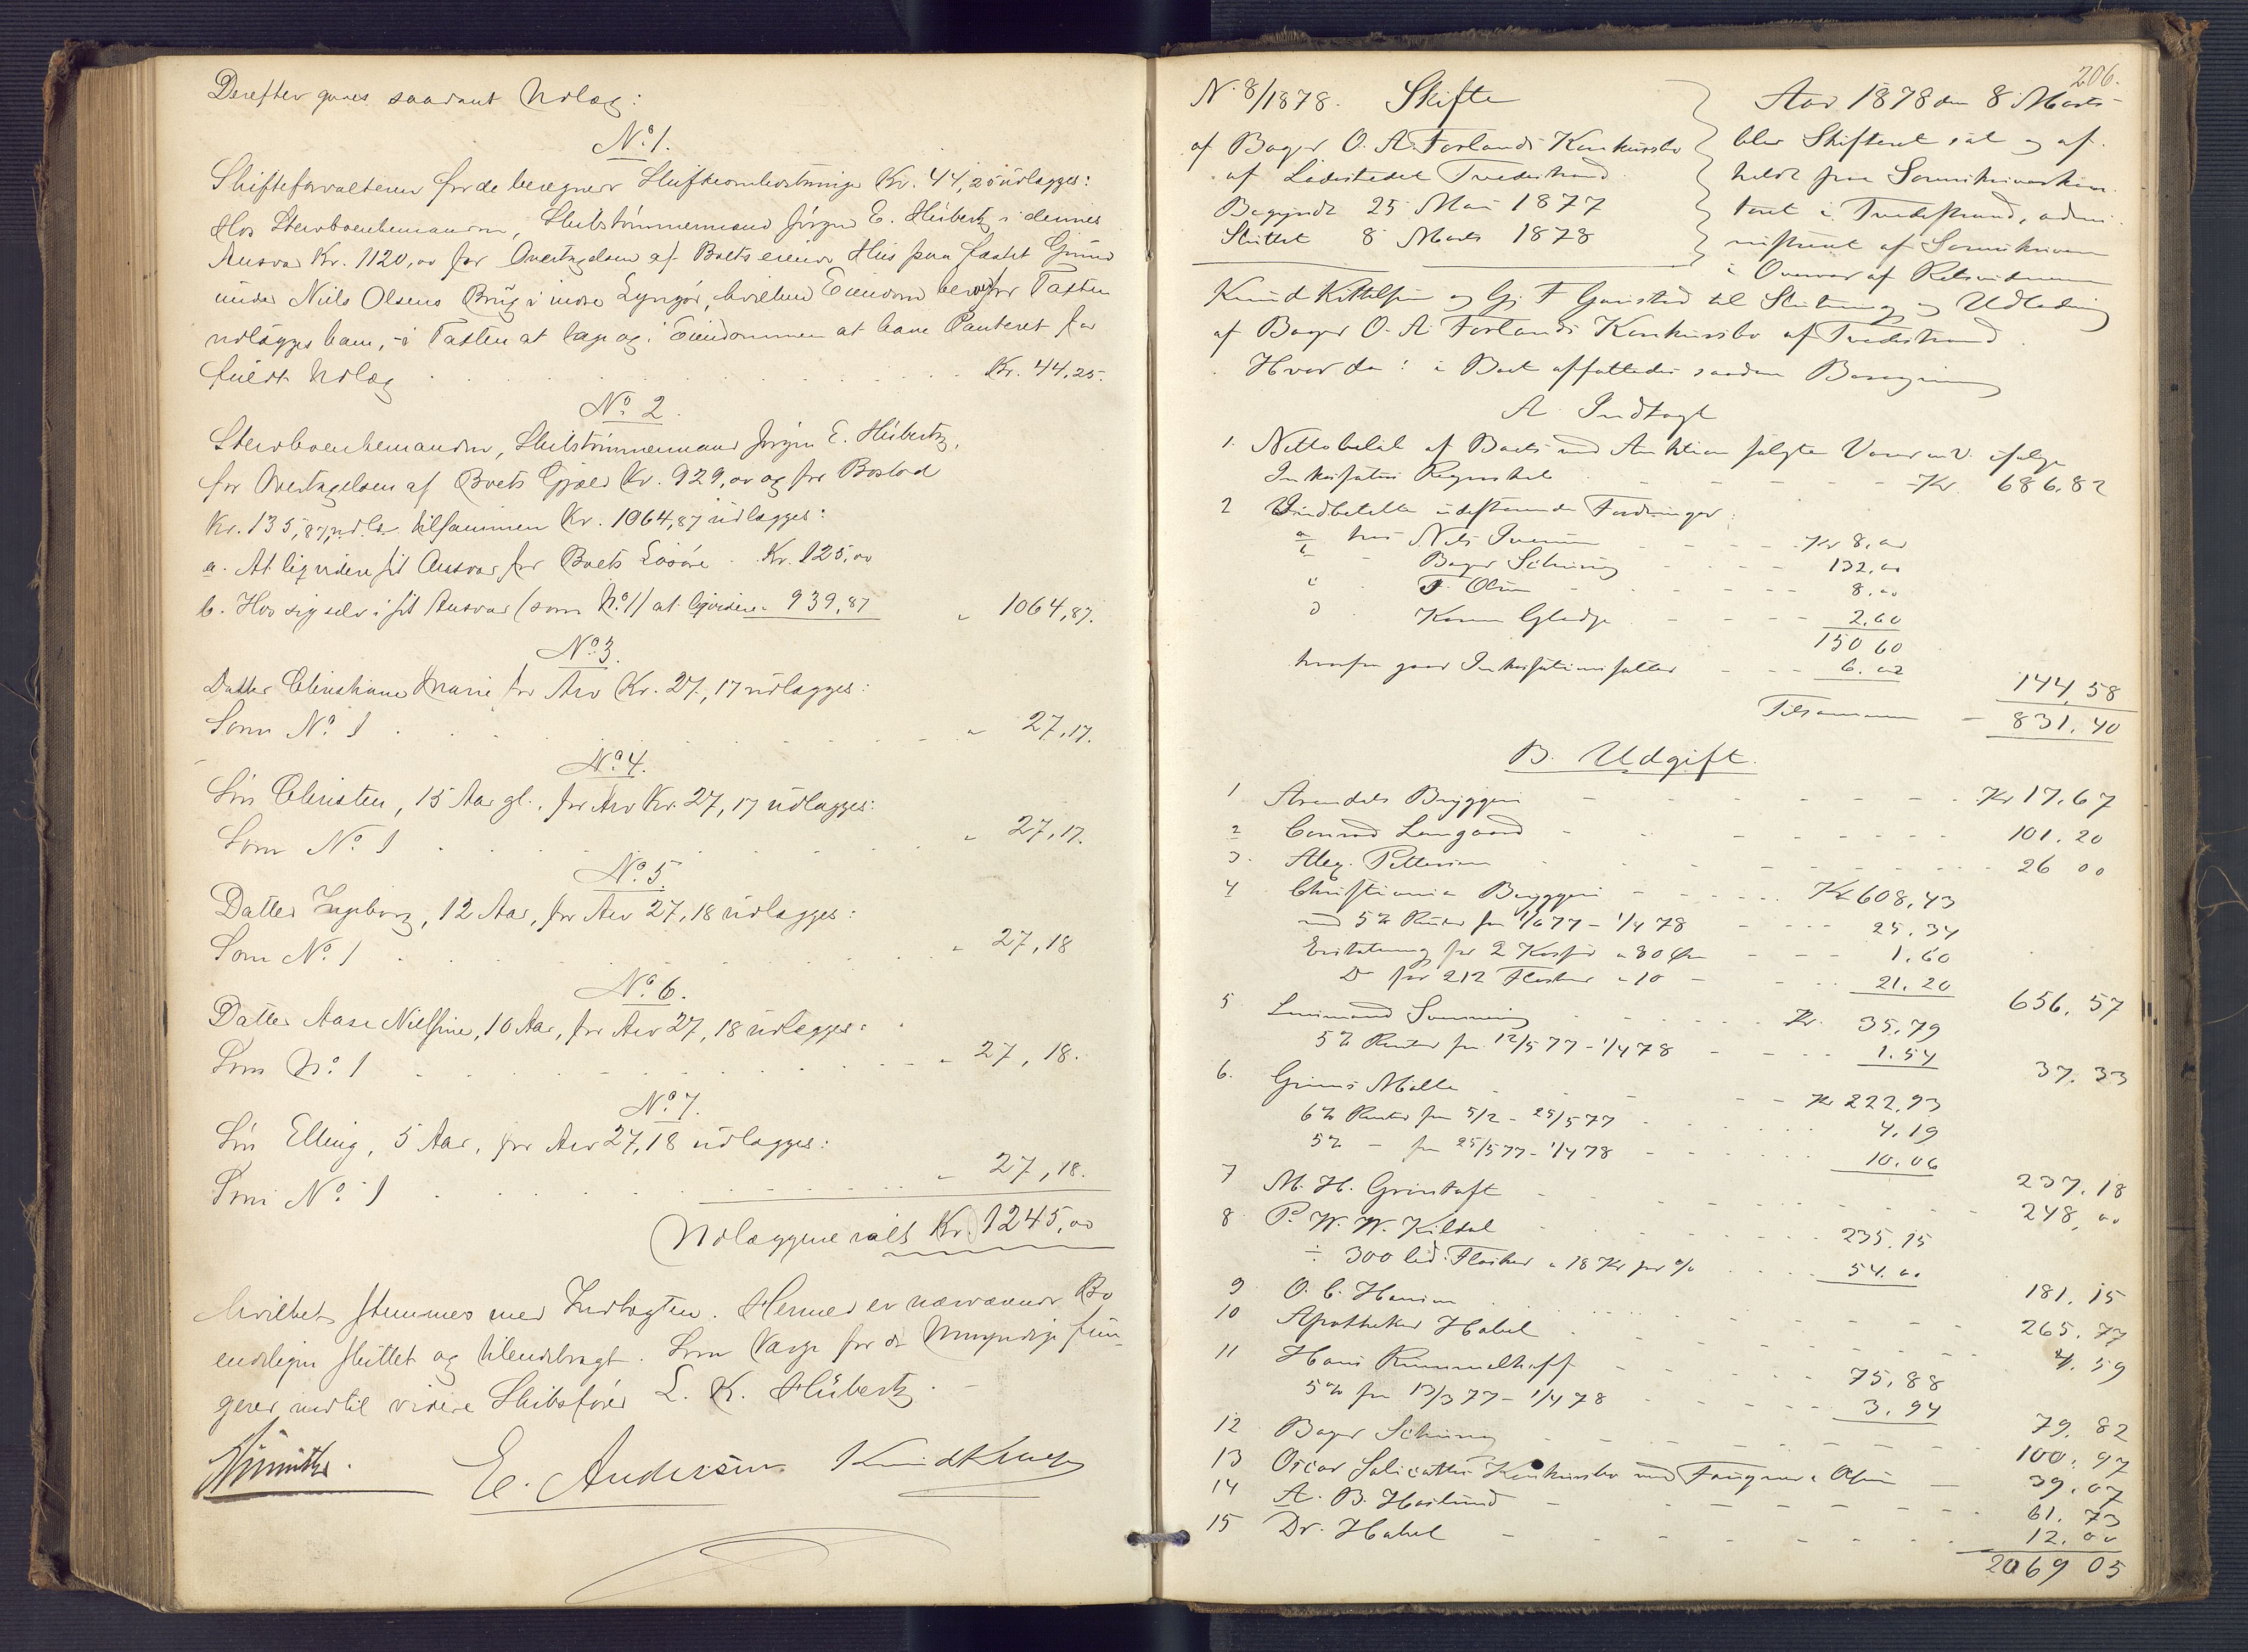 Derefter gjøres saadant Udlæg:
No 1.
Skifteforvalteren for de beregnede Skifteomkostninger Kr. 44,25 udlægges:
Hos Stervboenkemanden, Skibstømmermand Jørgen E. Hübertz i dennes
Ansvar Kr. 1120,00 for Overtagelsen af Boets eiende Hus paa fæstet Grund
under Niels Olsens Brug i indre Lyngør, hvilken Eiendom herved for Taxten
udlægges ham, i Taxten at tage og i Eiendommen at have Panteret for
skeet Udlæg . . . . Kr. 44,25.
No 2.
Stervboenkemanden, Skibstømmermand Jørgen E. Hübertz,
for Overtagelsen af Boets Gjæld Kr. 929,00 og for Boslod
Kr. 135,87, tilsammen Kr. 1064,87 udlægges:
a. At liqvidere sit Ansvar for Boets Løsøre . Kr. 125,00
b. Hos sig selv i sit Ansvar (som No 1) at liqvidere " 939,87 " 1064,87.
No 3.
Datter Christiane Marie for Arv Kr. 27,17 udlægges:
Som No 1 . . . " 27,17.
No 4.
Søn Christen, 15 Aar gl., for Arv Kr. 27,17 udlægges:
Som No 1 . . . " 27,17.
No 5.
Datter Ingeborg, 12 Aar, for Arv 27,18 udlægges:
Som No 1 . . . " 27,18
No 6.
Datter Aase Nielsine, 10 Aar, for Arv 27,18 udlægges:
Som No 1 . . . " 27,18.
No 7.
Søn Elling, 5 Aar, for Arv 27,18 udlægges:
Som No 1 . . . " 27,18.
Udlæggene ialt Kr. 1245,00
hvilket stemmes med Indtægten. Hermed er nærværende Bo
endeligen sluttet og tilendebragt. Som Værge for de Umyndige fun-
gerer indtil videre Skibsfører L. K. Hübertz.
E. Andersen
206.
N. 8/1878. Skifte
af Bager O. A. Forlands Konkursbo
af Ladestedet Tvedestrand
Begyndt 25 Mai 1877
Sluttet 8 Marts 1878
Aar 1878 den 8 Marts
blev Skifteret sat og af-
holdt paa Sorenskriverkon-
toret i Tvedestrand, admi-
nistreret af Sorenskriveren
i Overvær af Retsvidnerne
Knud Kittelsen og Gj. F. Gavestad til Slutning og Udlodning
af Bager O. A. Forlands Konkursbo af Tvedestrand
Hvor da: i Boet affattedes saadan Beregning
A Indtægt
1. Nettobeløb af Boets ved Auktion solgte Varer m.V. ifølge
Inkassations Regnskab - - - Kr. 686.82
2 Indbetalte udestaaende Fordringer:
a hos Nils Iversen - - Kr 8,00
b - Bager Schiung - - 132,00
c F. Olsen - - 8.00
d Karen Gledje - - 2,60
150 60
hvorfra gaar Inkassationssallær - - 6.02
144,58
Tilsammen - 831.40
B. Udgift.
1 Arendals Bryggeri - - Kr 17.67
2 Conrad Langaard - - 101.20
3. Alex. Pettersen - - 26 00
4 Christiania Bryggeri - - Kr 608,43
med 5% Renter fra 1/6 77 - 1/4 78 - - 25.34
Erstatning for 2 Kasser a 80 Øre - - 1.60
Do for 212 Flasker a 10 - 21.20
656.57
5 - - Kr. 35.79
5% Renter fra 12/5 77 - 1/4 78 - - 1.54
37.33
6. Grims Mølle - - Kr 222,93
6% Renter fra 5/2 - 25/5 77 - - 4.19
5% - fra 25/5 77 - 1/4 78 - - 10.06
237.18
7 M. H. Grinitaft - - 248,00
8 P. W. W. Kildal - - 235.15
÷ 300 led. Flasker a 18 Kr per % 54.00
181.15
9 O. C. Hansen - - 265.77
10 Apotheker Habel - - 4.59
11 Hans Rummelhoff - - 75,88
5% fra 13/3 77 - 1/4 78 - - 3.94
79.82
12 Bager Schiung - - 100.97
13 Oscar Salicaths Konkursbo ved Fougner & Olsen - 39.07
14 A. B. Haslund - - 61.73
15 Dr. Habel - - 12.00
2069 05